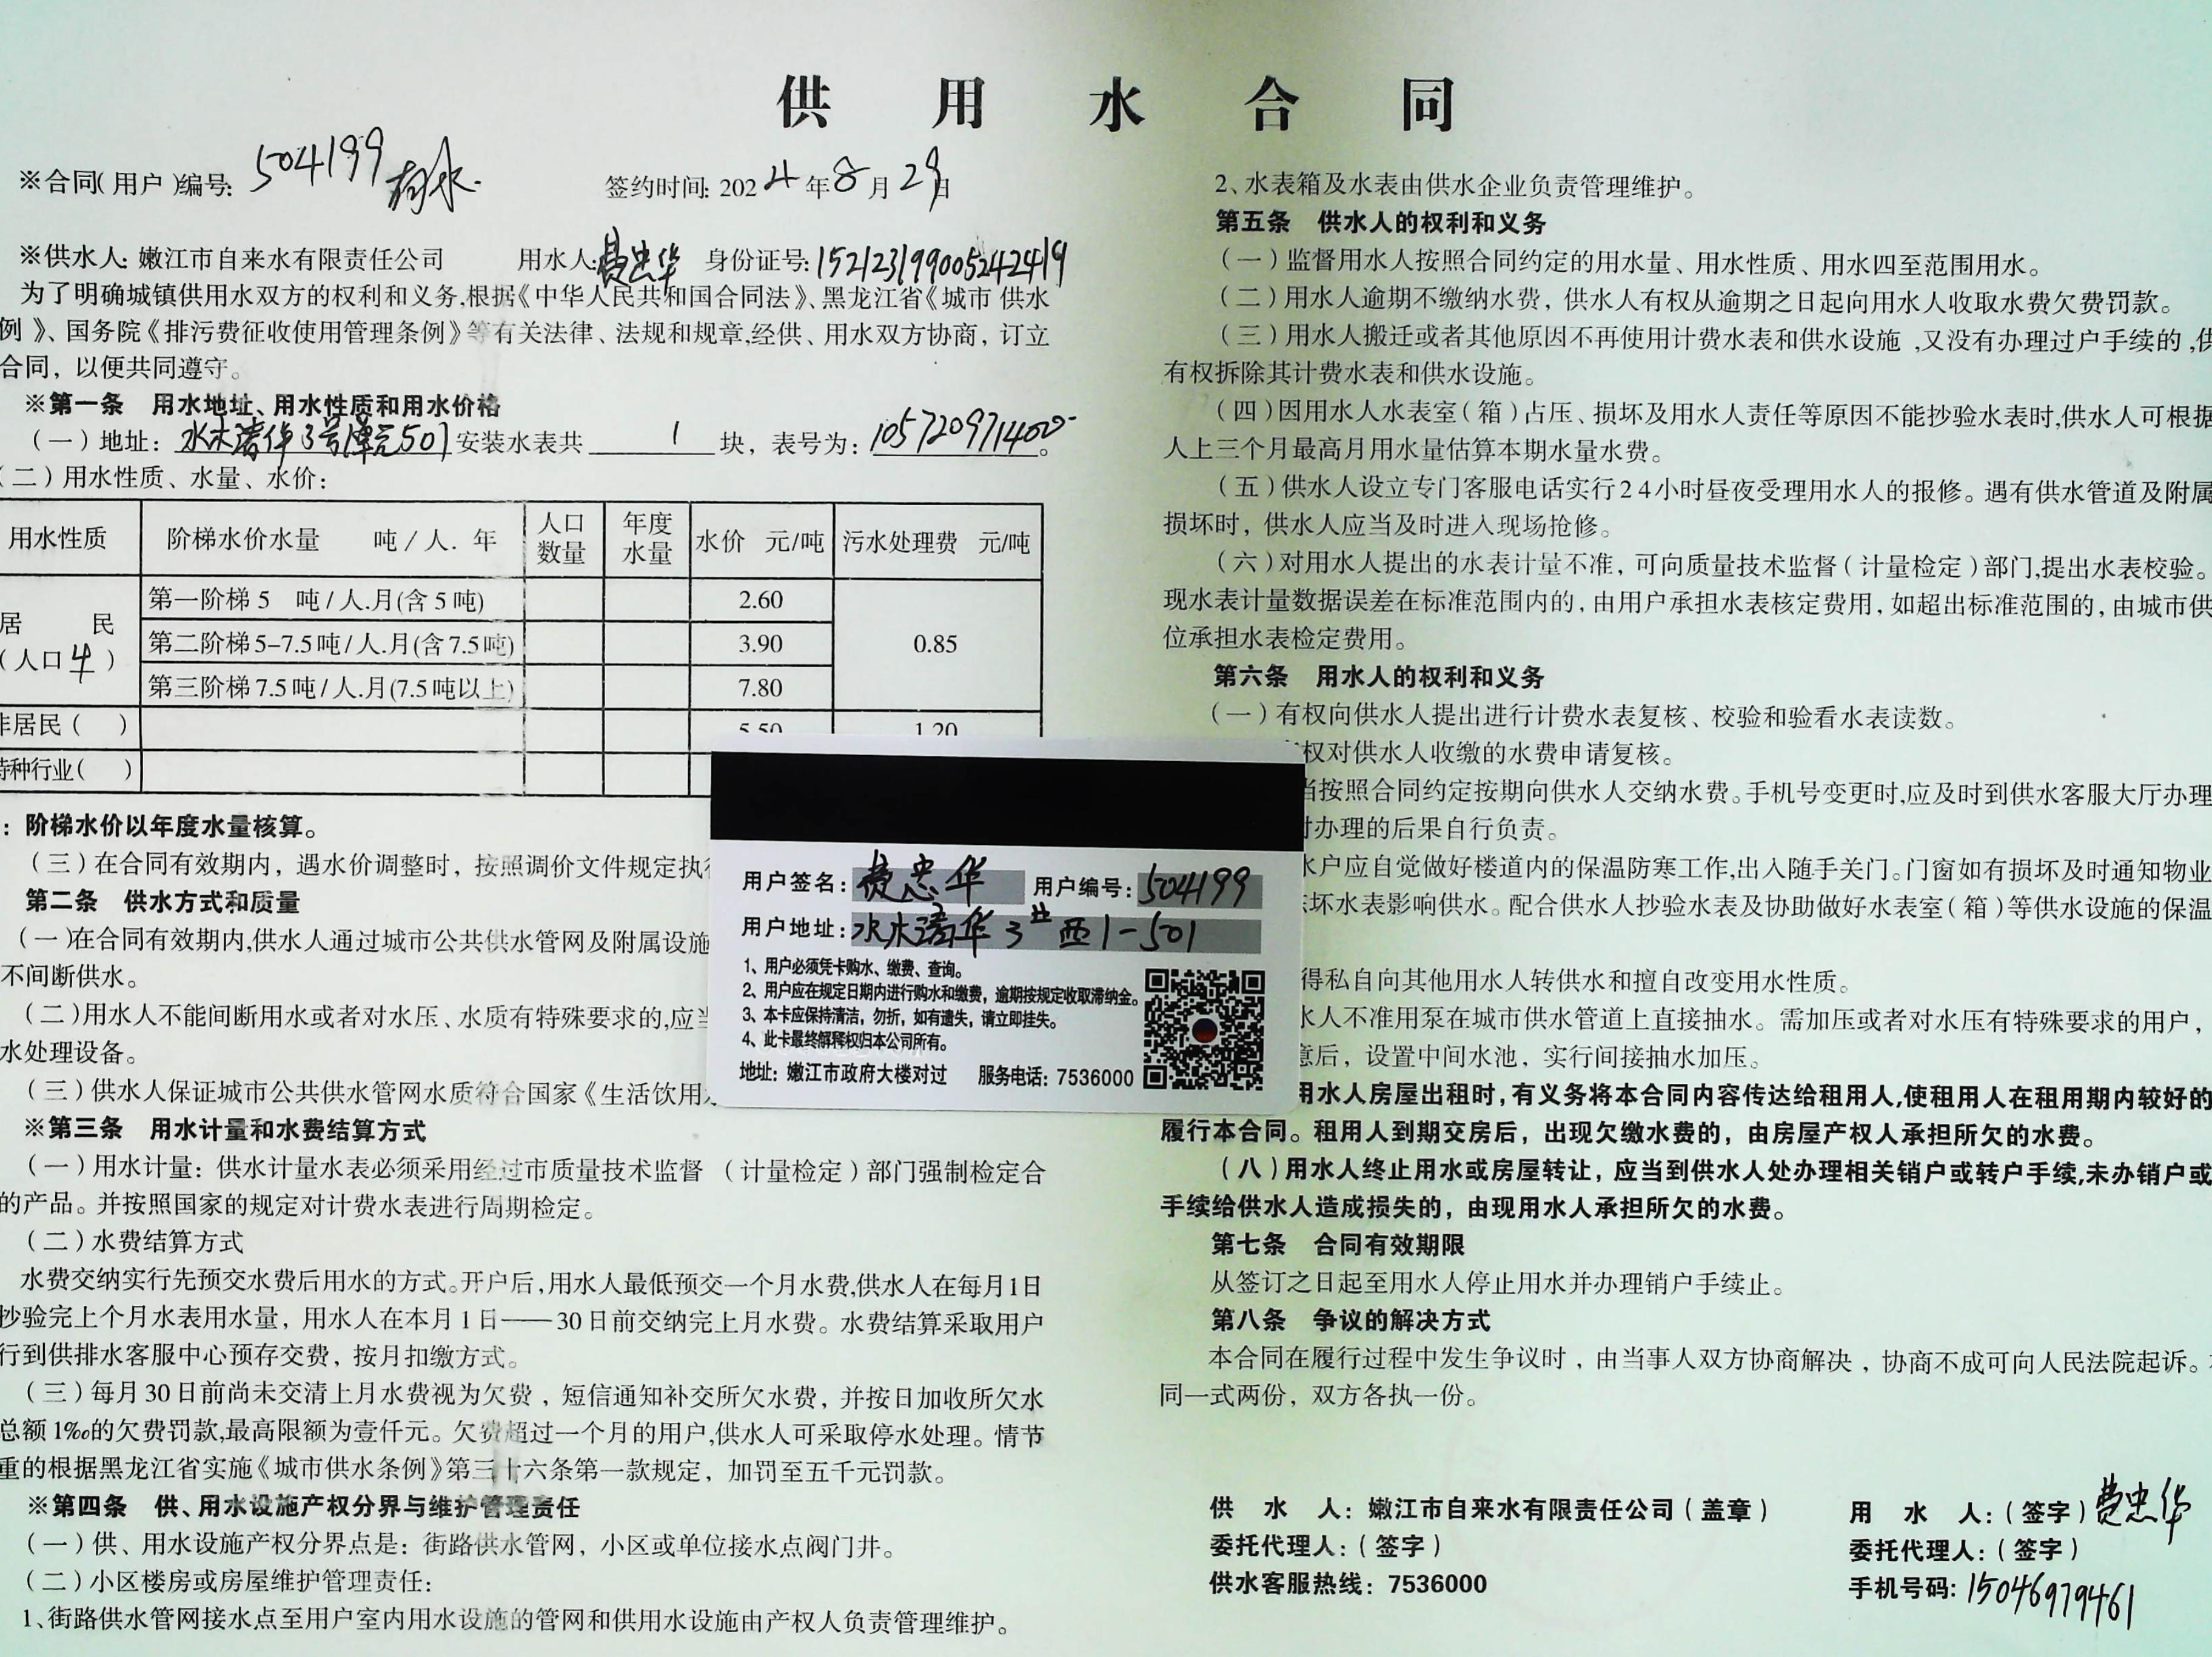 供用水合同
※合同(用户)编号: 504199
签约时间: 2024年8月29日
※供水人: 嫩江市自来水有限责任公司 用水人: 费忠华 身份证号: 152123199005242419
为了明确城镇供用水双方的权利和义务,根据《中华人民共和国合同法》、黑龙江省《城市 供水
例》、国务院《排污费征收使用管理条例》等有关法律、法规和规章,经供、用水双方协商, 订立
合同, 以便共同遵守。
※第一条 用水地址、用水性质和用水价格
(一)地址: 水木清华3号 501 安装水表共 1 块, 表号为: 105720971400。
(二)用水性质、水量、水价:
用水性质 阶梯水价水量 吨/人. 年 人口数量 年度水量 水价 元/吨 污水处理费 元/吨
居 民 (人口4)
第一阶梯 5 吨/人.月(含5吨) 2.60
第二阶梯 5-7.5吨/人.月(含7.5吨) 3.90 0.85
第三阶梯 7.5吨/人.月(7.5吨以上) 7.80
非居民( ) 5.50 1.20
特种行业( )
: 阶梯水价以年度水量核算。
(三)在合同有效期内, 遇水价调整时, 按照调价文件规定执行
第二条 供水方式和质量
(一)在合同有效期内,供水人通过城市公共供水管网及附属设施
不间断供水。
(二)用水人不能间断用水或者对水压、水质有特殊要求的,应当
水处理设备。
(三)供水人保证城市公共供水管网水质符合国家《生活饮用水
※第三条 用水计量和水费结算方式
(一)用水计量: 供水计量水表必须采用经过市质量技术监督 (计量检定)部门强制检定合
的产品。并按照国家的规定对计费水表进行周期检定。
(二)水费结算方式
水费交纳实行先预交水费后用水的方式。开户后,用水人最低预交一个月水费,供水人在每月1日
抄验完上个月水表用水量, 用水人在本月1日——30日前交纳完上月水费。水费结算采取用户
行到供排水客服中心预存交费, 按月扣缴方式。
(三)每月30日前尚未交清上月水费视为欠费, 短信通知补交所欠水费, 并按日加收所欠水
总额1‰的欠费罚款,最高限额为壹仟元。欠费超过一个月的用户,供水人可采取停水处理。情节
重的根据黑龙江省实施《城市供水条例》第三十六条第一款规定, 加罚至五千元罚款。
※第四条 供、用水设施产权分界与维护管理责任
(一)供、用水设施产权分界点是: 街路供水管网, 小区或单位接水点阀门井。
(二)小区楼房或房屋维护管理责任:
1、街路供水管网接水点至用户室内用水设施的管网和供用水设施由产权人负责管理维护。
2、水表箱及水表由供水企业负责管理维护。
第五条 供水人的权利和义务
(一)监督用水人按照合同约定的用水量、用水性质、用水四至范围用水。
(二)用水人逾期不缴纳水费, 供水人有权从逾期之日起向用水人收取水费欠费罚款。
(三)用水人搬迁或者其他原因不再使用计费水表和供水设施 ,又没有办理过户手续的,供
有权拆除其计费水表和供水设施。
(四)因用水人水表室(箱)占压、损坏及用水人责任等原因不能抄验水表时,供水人可根据
人上三个月最高月用水量估算本期水量水费。
(五)供水人设立专门客服电话实行24小时昼夜受理用水人的报修。遇有供水管道及附属
损坏时, 供水人应当及时进入现场抢修。
(六)对用水人提出的水表计量不准, 可向质量技术监督(计量检定)部门,提出水表校验。
现水表计量数据误差在标准范围内的, 由用户承担水表核定费用, 如超出标准范围的, 由城市供
位承担水表检定费用。
第六条 用水人的权利和义务
(一)有权向供水人提出进行计费水表复核、校验和验看水表读数。
权对供水人收缴的水费申请复核。
当按照合同约定按期向供水人交纳水费。手机号变更时,应及时到供水客服大厅办理
时办理的后果自行负责。
水户应自觉做好楼道内的保温防寒工作,出入随手关门。门窗如有损坏及时通知物业
坏水表影响供水。配合供水人抄验水表及协助做好水表室(箱)等供水设施的保温
得私自向其他用水人转供水和擅自改变用水性质。
水人不准用泵在城市供水管道上直接抽水。需加压或者对水压有特殊要求的用户,
意后, 设置中间水池, 实行间接抽水加压。
用水人房屋出租时, 有义务将本合同内容传达给租用人,使租用人在租用期内较好的
履行本合同。租用人到期交房后, 出现欠缴水费的, 由房屋产权人承担所欠的水费。
(八)用水人终止用水或房屋转让, 应当到供水人处办理相关销户或转户手续,未办销户或
手续给供水人造成损失的, 由现用水人承担所欠的水费。
第七条 合同有效期限
从签订之日起至用水人停止用水并办理销户手续止。
第八条 争议的解决方式
本合同在履行过程中发生争议时, 由当事人双方协商解决, 协商不成可向人民法院起诉。
同一式两份, 双方各执一份。
供 水 人: 嫩江市自来水有限责任公司(盖章)
委托代理人:(签字)
供水客服热线: 7536000
用 水 人:(签字) 费忠华
委托代理人:(签字)
手机号码: 15046979461
用户签名: 费忠华 用户编号: 504199
用户地址: 水木清华 3# 西1-501
1、用户必须凭卡购水、缴费、查询。
2、用户应在规定日期内进行购水和缴费, 逾期按规定收取滞纳金。
3、本卡应保持清洁, 勿折, 如有遗失, 请立即挂失。
4、此卡最终解释权归本公司所有。
地址: 嫩江市政府大楼对过 服务电话: 7536000